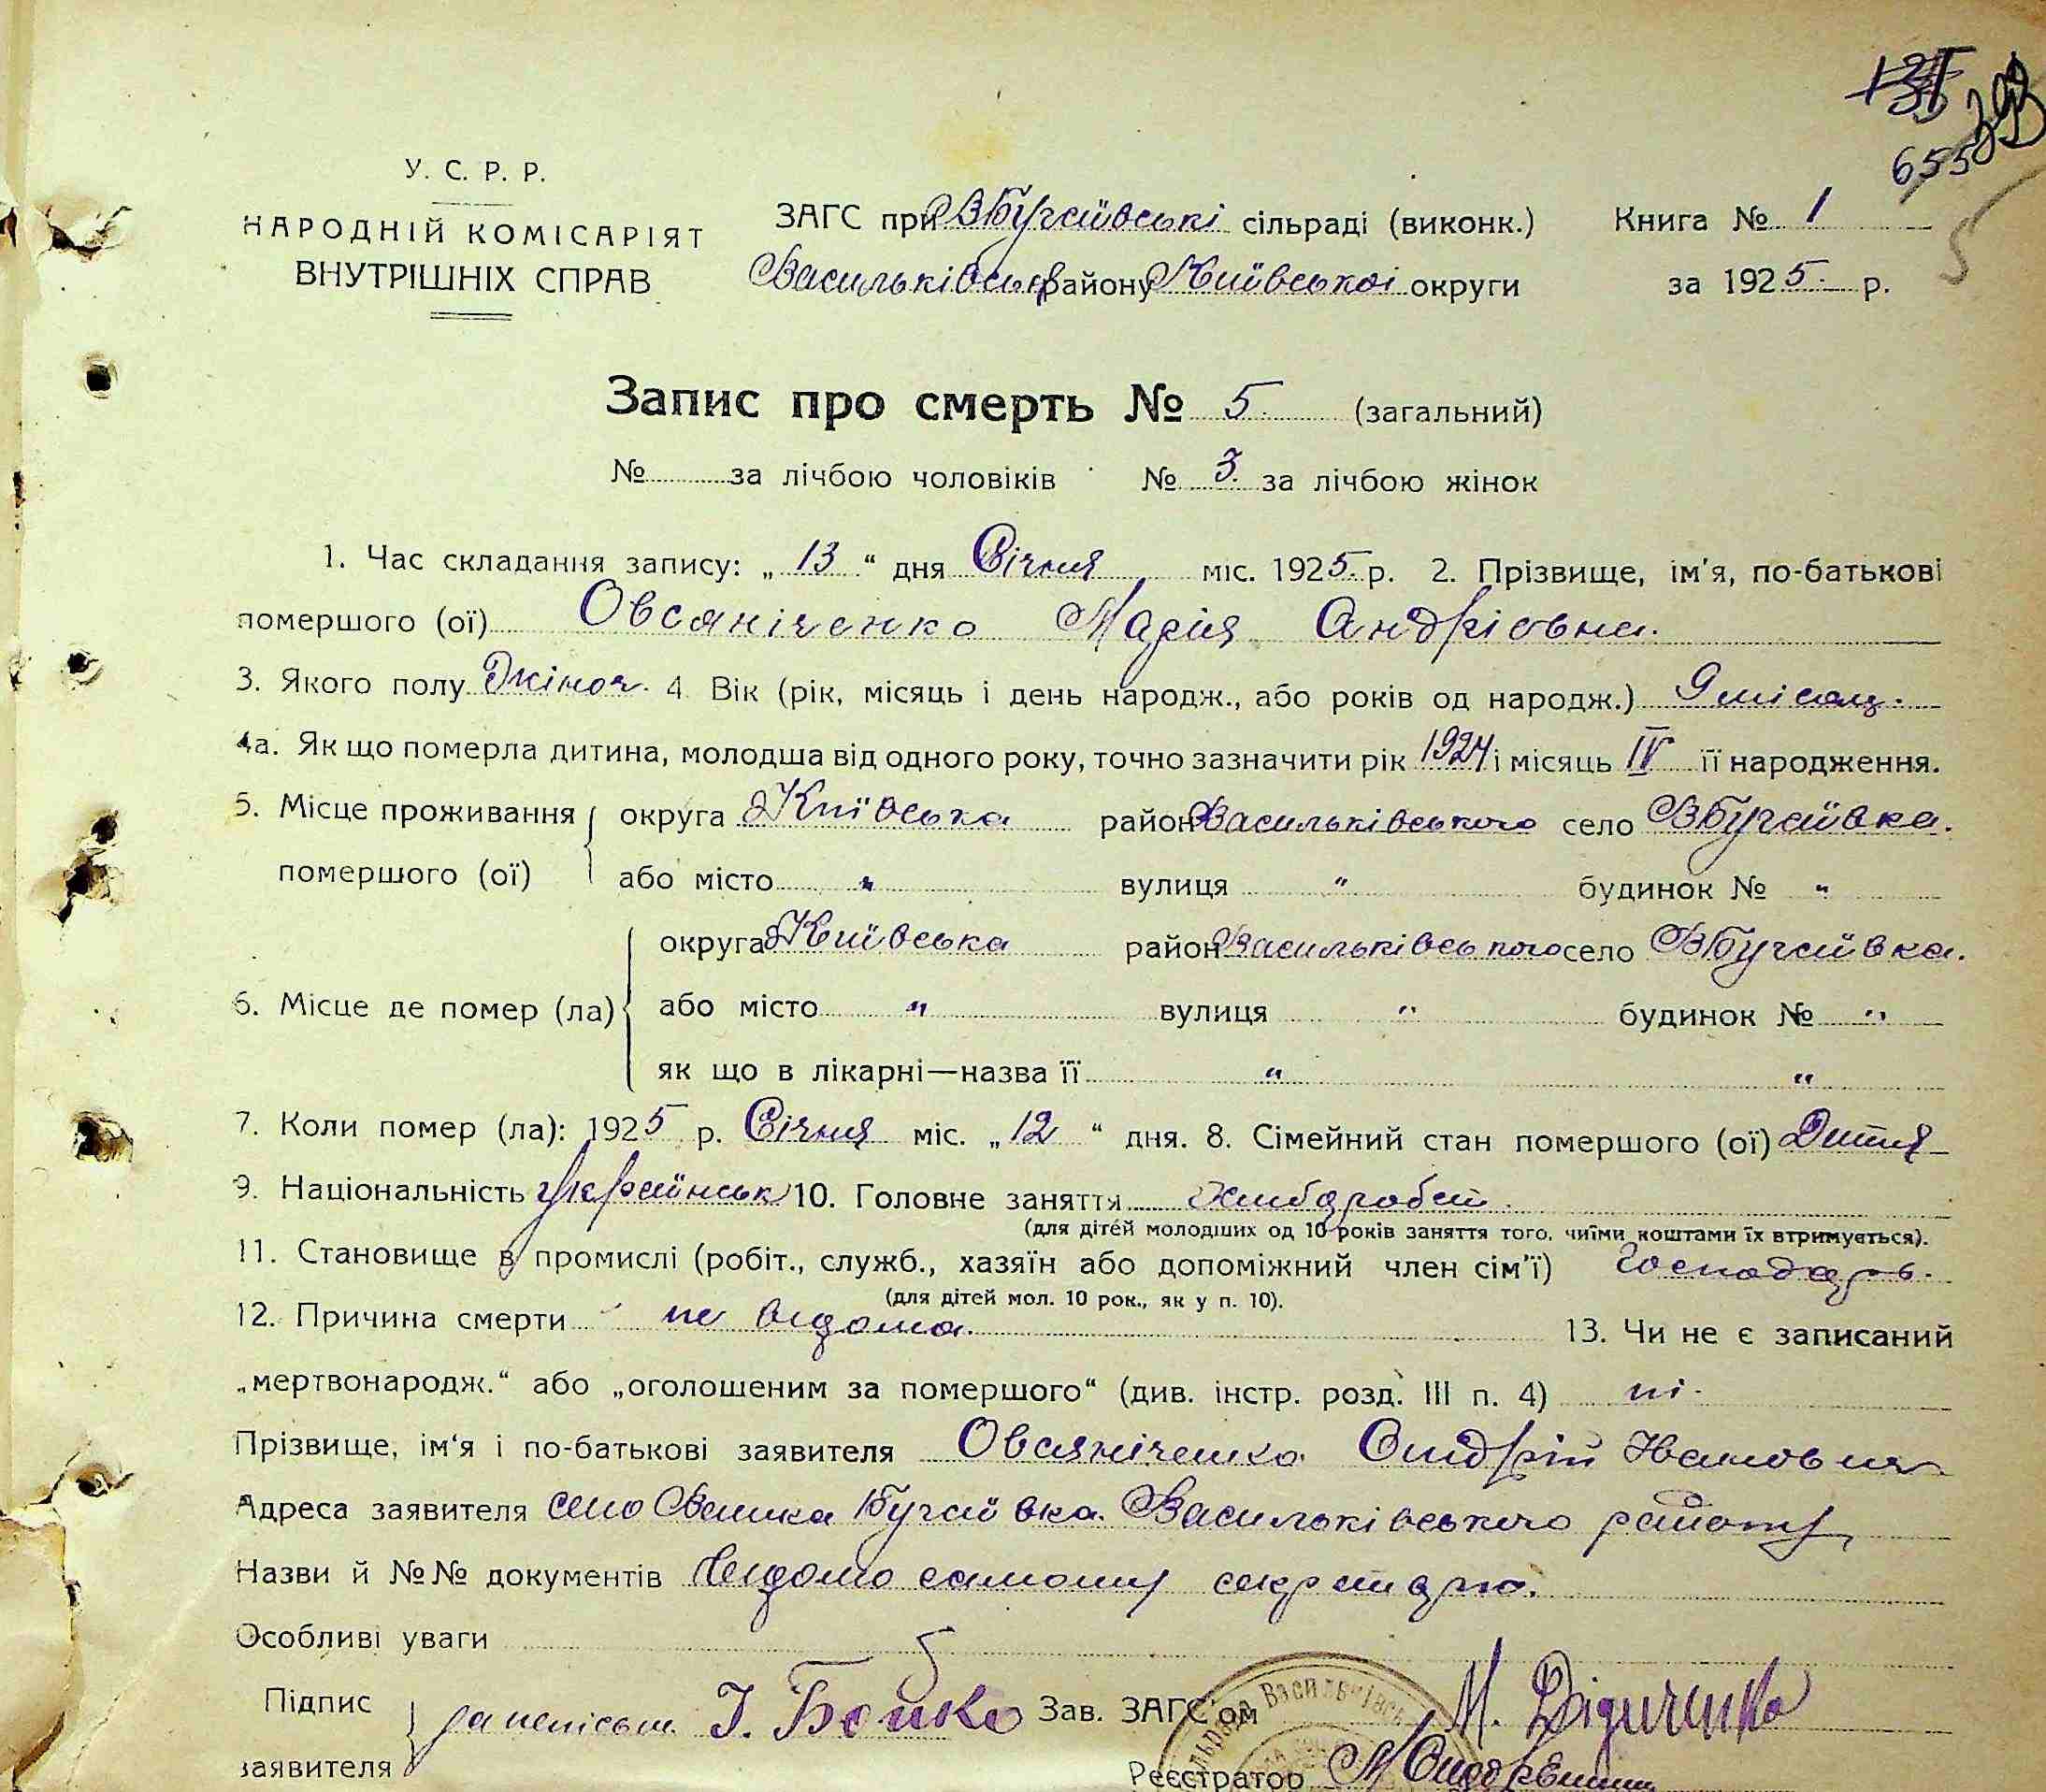 655
У. С. Р. Р.
НАРОДНІЙ КОМІСАРІЯТ
ВНУТРІШНІХ СПРАВ
ЗАГС при ВБугаївські сільраді (виконк.) Книга № 1
Васильківськ району Київської округи за 1925 р.
Запис про смерть № 5 (загальний)
№ за лічбою чоловіків № 3 за лічбою жінок
1. Час складання запису: „13“ дня Січня міс. 1925 р. 2. Прізвище, ім'я, по-батькові
помершого (ої) Овсяніченко Марія Андрієвна.
3. Якого полу Жіноч. 4 Вік (рік, місяць і день народж., або років од народж.) 9 місяц.
4а. Як що померла дитина, молодша від одного року, точно зазначити рік 1924 і місяць IV її народження.
5. Місце проживання округа Київська район Васильківського село ВБугаївка.
помершого (ої) або місто " вулиця " будинок № "
округа Київська район Васильківського село ВБугаївка.
6. Місце де помер (ла) або місто " вулиця " будинок № "
як що в лікарні—назва її " "
7. Коли помер (ла): 1925 р. Січня міс. „12“ дня. 8. Сімейний стан помершого (ої) Дитя
9. Національність Українськ 10. Головне заняття Хлібороб
(для дітей молодших од 10 років заняття того, чиїми коштами їх втримується).
11. Становище в промислі (робіт., служб., хазяїн або допоміжний член сім'ї) Господарь.
(для дітей мол. 10 рок., як у п. 10).
12. Причина смерти не відома. 13. Чи не є записаний
„мертвонародж.“ або „оголошеним за помершого“ (див. інстр. розд. III п. 4) ні.
Прізвище, ім'я і по-батькові заявителя Овсяніченко Андрій
Адреса заявителя село Велика Бугаївка Васильківського району
Назви й №№ документів Відомо самому секретарю.
Особливі уваги
Підпис заявителя І. Бойко Зав. ЗАГС'ом М. Дідиченко
Реєстратор